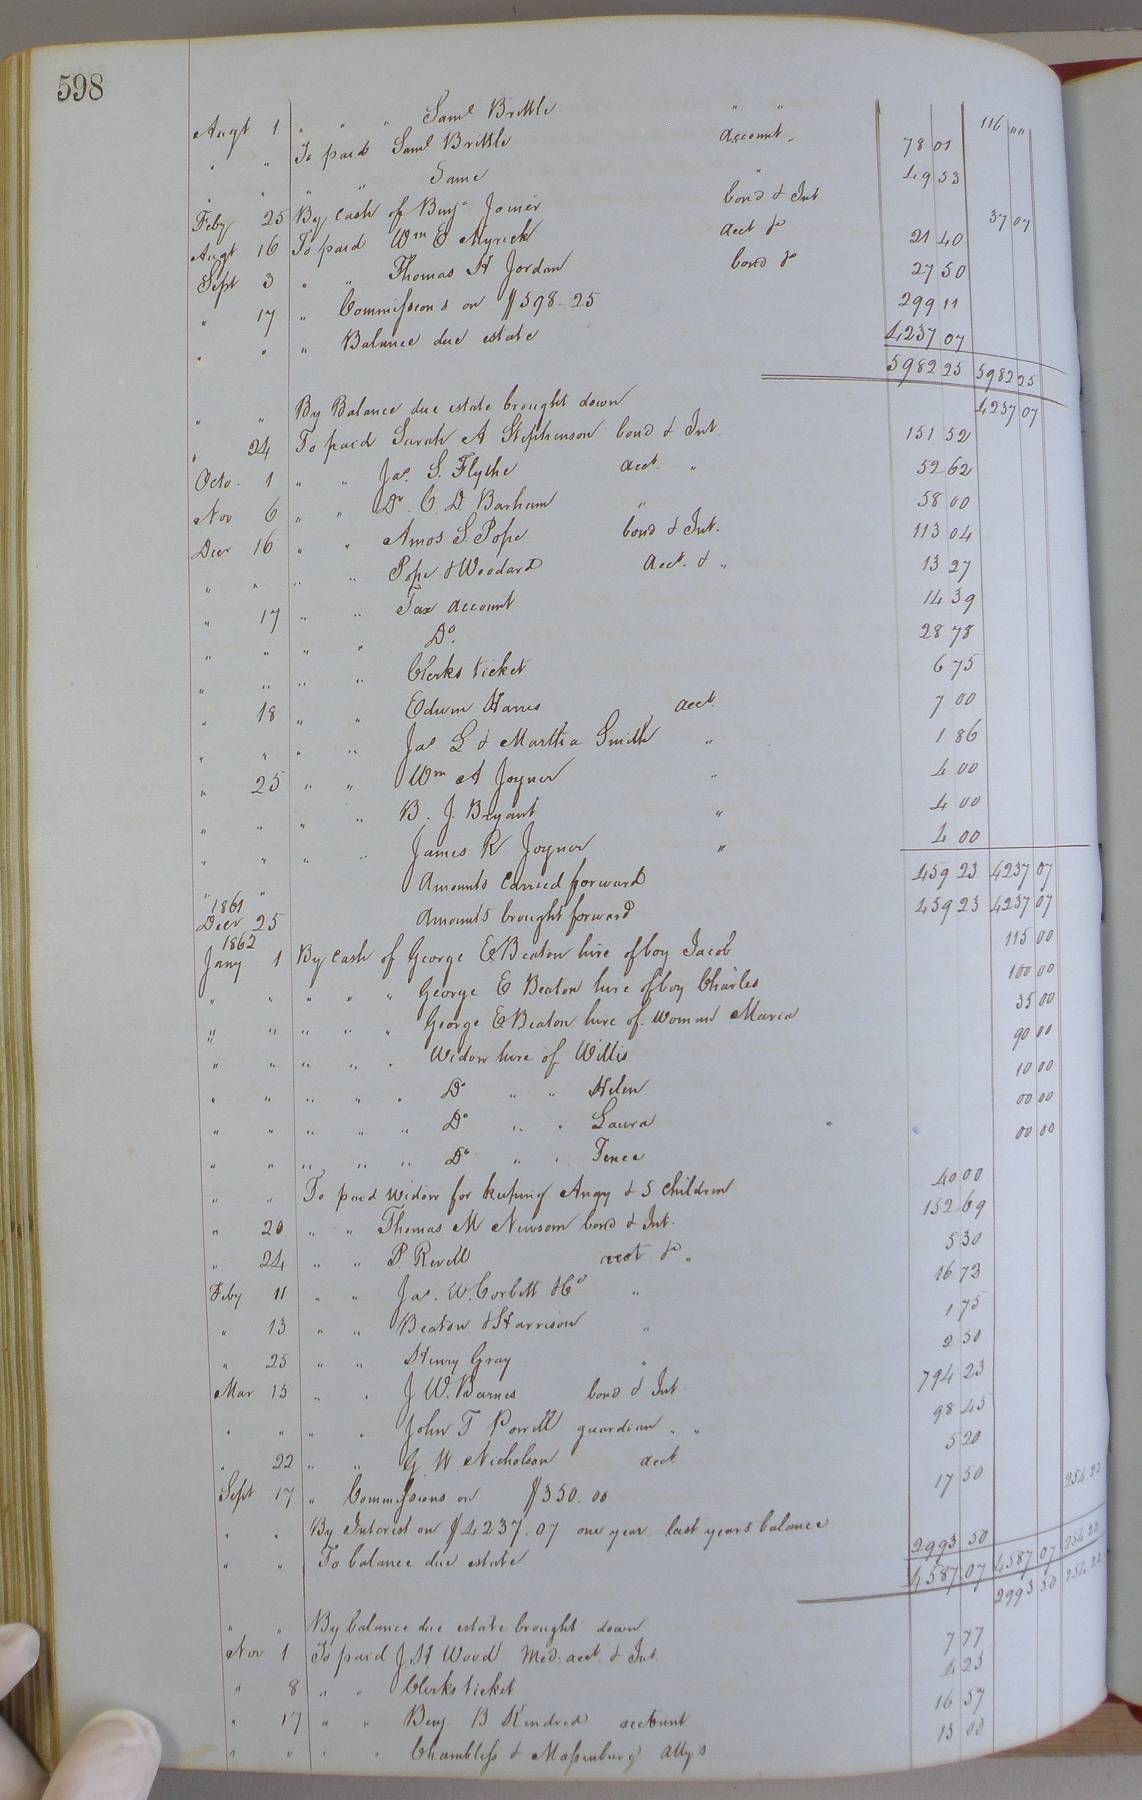 598
Augt 1 " " " Saml Brittle " " 116 ""
" " To paid Saml Brittle account " 78 01
" " " " Same " 49 53
Feby 25 By Cash of Benjn Joiner bond & Int 37 07
Augt 16 To paid Wm E Myrick acct &c 21 40
Sept 3 " " Thomas H Jordan bond &c 27 50
" 17 " Commissions on $598.25 299 11
" " " Balance due estate 4237 07
5982 25 5982 25
" " By Balance due estate brought down 4237 07
" 24 To paid Sarah A Stephenson bond & Int. 151 52
Octo. 1 " " Jas. S. Flythe acct. " 52 62
Nov 6 " " Dr. C. D. Barham " 58 00
Decr 16 " " Amos S. Pope bond & Int. 113 04
" " " " Pope & Woodard Acct. & " 13 27
" 17 " " Tax account 14 39
" " " " Do. 28 78
" " " " Clerks ticket 6 75
" 18 " " Edwin Harris acct. 7 00
" " " " Jas L & Martha Smith " 1 86
" 25 " " Wm A Joyner " 4 00
" " " " B. J. Bryant " 4 00
" " " " James R Joyner " 4 00
" " Amounts Carried forward 459 23 4237 07
1861
Decr 25 Amounts brought forward 459 23 4237 07
1862
Jany 1 By Cash of George E Beaton hire of boy Jacob 115 00
" " " " " George E Beaton hire of boy Charles 100 00
" " " " " George E Beaton hire of Woman Maria 35 00
" " " " " Widow hire of Willis 90 00
" " " " " Do " " Helen 10 00
" " " " " Do " " Laura 00 00
" " " " " Do " " Fence 00 00
" " To paid Widow for keeping Angy & 5 Children 40 00
" 20 " " Thomas M Newsom bond & Int. 152 69
" 24 " " P. Revell acct &c " 5 30
Feby 11 " " Jas. W. Corbett & Co " 16 73
" 13 " " Beaton & Harrison " 1 75
" 25 " " Henry Gray " 2 50
Mar 15 " " J W. Barnes bond & Int. 794 23
" " " " John T Powell guardian " " 98 45
" 22 " " G. W Nicholson acct. 5 20
Sept 17 " Commissions on $350.00 17 50
" " By Interest on $4237.07 one year last years balance 254 22
" " To balance due estate 2993 50
4587 07 4587 07 254 22
" " By balance due estate brought down 2993 50 254 22
Nov 1 To paid J. H. Wood Med. acct & Int. 7 77
" 8 " " Clerks ticket 4 25
" 17 " " Benj. B Kindred account 16 57
" " " " Chambliss & Massenburg Attys 13 00